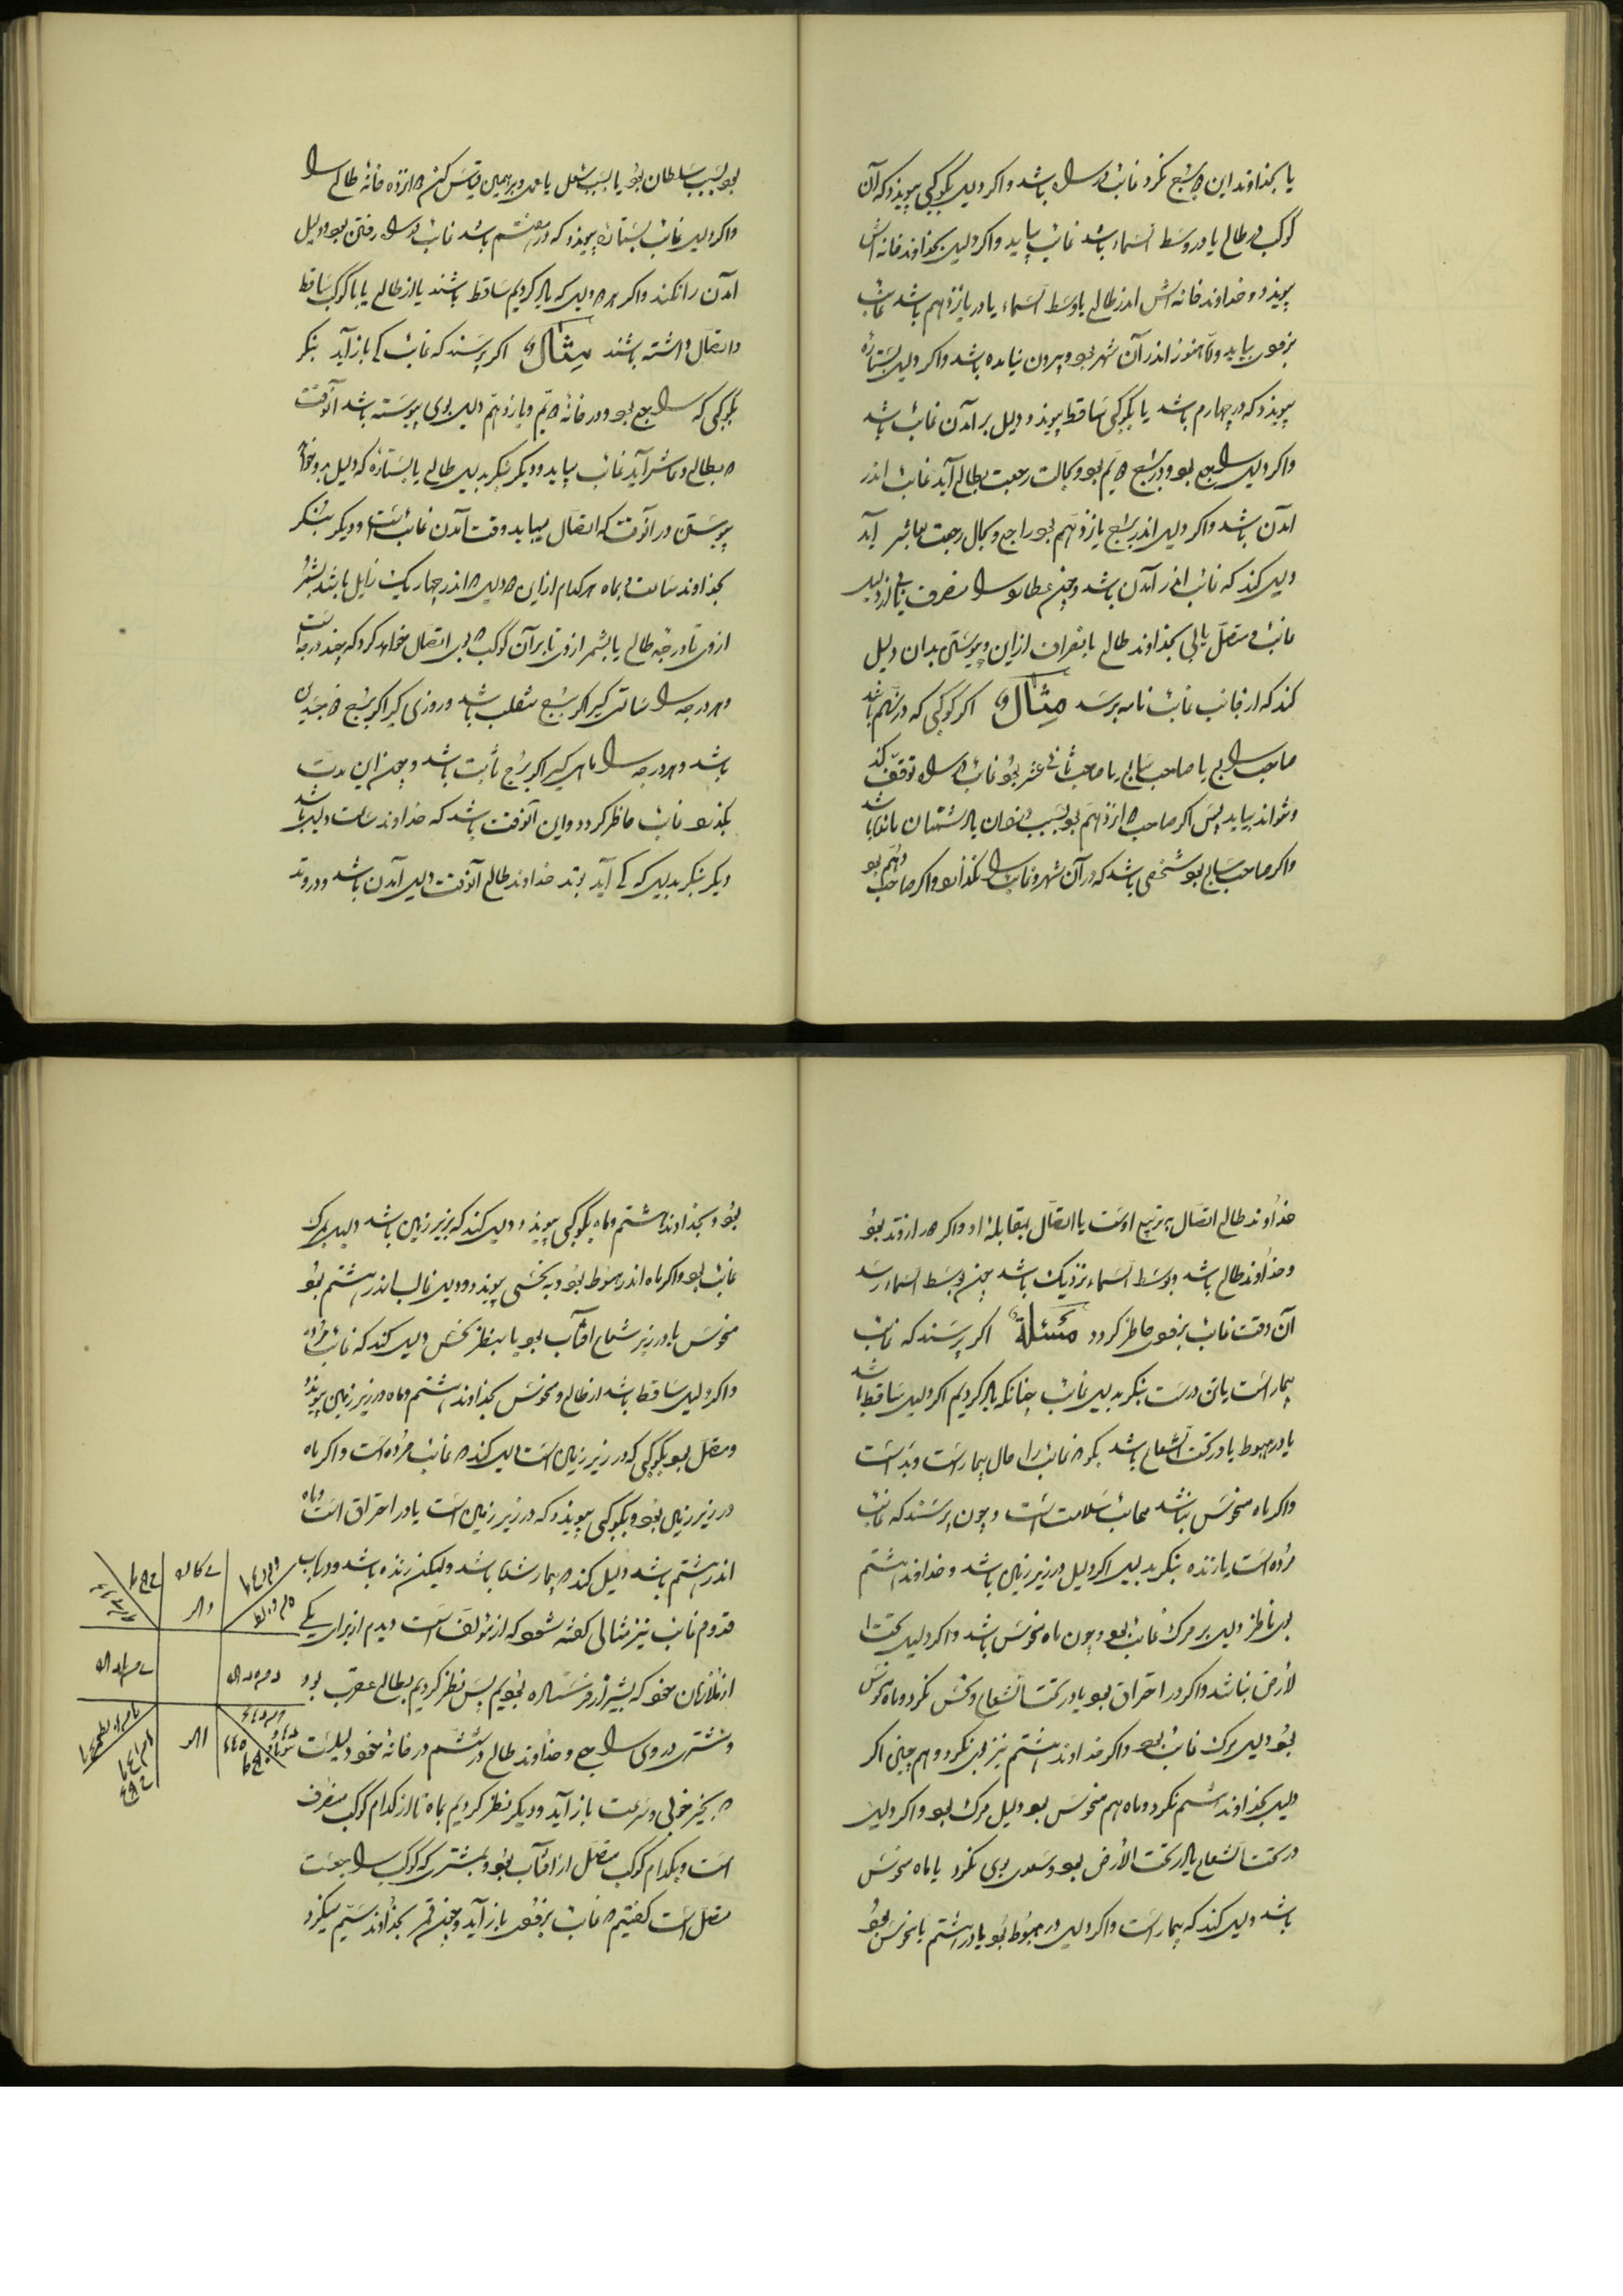 یا بخداوند این برج نکرد غائب در راه باشد واکر دلیل بکوکبی پیوندد که آن
کوکب در طالع یا در وسط السماء باشد غائب بیاید واکر دلیل بخداوند خانه اش
پیوندد و خداوند خانه اش اندر طالع یا وسط السماء یا در یازدهم باشد غائب
بزودی بیاید و تا هنوز اندر آن شهر بود وبیرون نیامده باشد واکر دلیل بستارهٔ
پیوندد که در چهارم باشد یا بکوکبی ساقط پیوندد دلیل بر آمدن غائب باشد
واکر دلیل راجع بود و در برج نهم بود وبحالت رجعت بطالع آید غائب اندر
آمدن باشد واکر دلیل اندر برج یازدهم بود راجع و بحال رجعت بعاشر آید
دلیل کند که غائب اندر آمدن باشد وچون عطارد را منصرف یابی از دلیل
غائب و متصل یابی بخداوند طالع یا بقمر از این وپیوستن بدان دلیل
کند که از جانب غائب نامه برسد مثال اکر کوکبی که در نهم باشد
صاحب رابع یا صاحب سابع یا صاحب ثانی عشر بود غائب در راه توقف کند
ونتواند بیاید پس اکر صاحب دوازدهم بود بسبب دزدان یا دشمنان باشد
واکر صاحب سابع بود شخصی باشد که در آن شهر و غائب را نکذارد واکر صاحب دهم بود
بود بسبب سلطان بود یا بسبب شغل یا عمل وبر همین قیاس کن دوازده خانهٔ طالع را
واکر دلیل غائب بستاره پیوندد که در هشتم باشد غائب در راه رفتن بود دلیل
آمدن را نکند واکر هر دو دلیل که یاد کردیم ساقط باشند یا از طالع یا با کوکب ساقط
واتصال داشته باشند مثال اکر پرسند که غائب کی باز آید بنکر
بکوکبی که راجع بود ودر خانهٔ نهم ویازدهم دلیل بوی پیوسته باشد آنوقت
که بطالع وعاشر آید غائب بیاید ودیکر بنکر بدلیل طالع یا بستاره که دلیل بدو خواهد
پیوستن در آنوقت که اتصال بیابد وقت آمدن غائب است ودیکر بنکر
بخداوند ساعت وبماه هر کدام از این دو دلیل که اندر چهار یک زایل باشد بشمر
از وی تا درجهٔ طالع یا بشمر از وی تا بر آن کوکب که بوی اتصال خواهد کرد که چند درجه است
وهر درجه را ساعتی کیر اکر برج منقلب باشد وروزی کیر اکر برج ذو جسدین
باشد وهر درجه را ماهی کیر اکر برج ثابت باشد وچون این مدت
بکذرد غائب حاظر کردد واین آنوقت باشد که خداوند ساعت دلیل باشد
دیکر بنکر بدلیل که کی آید بوتد خداوند طالع آنوقت دلیل آمدن باشد ودر وتد
خداوند طالع اتصال بتربیع اوست یا اتصال بمقابلهٔ او واکر در از وتد بود
وخداوند طالع باشد وبوسط السماء نزدیک باشد چون بوسط السماء رسد
آن وقت غائب بزودی حاظر کردد مسئلة اکر پرسند که غائب
بیمار است یا تن درست بنکر بدلیل غائب چنانکه یاد کردیم اکر دلیل ساقط باشد
یا در هبوط یا در تحت الشعاع باشد بکو که غائب را حال بیمار است وبد است
واکر ماه منحوس نباشد غائب سلامت است وچون پرسند که غائب
مرده است یا زنده بنکر بدلیل اکر دلیل در زیر زمین باشد وخداوند هشتم
بوی ناظر دلیل بر مرک غائب بود وچون ماه منحوس باشد واکر دلیل تحت ا
لأرض نباشد واکر در احتراق بود یا در تحت الشعاع ونحس نکرد وماه منحوس
بود دلیل مرک غائب بود واکر خداوند هشتم نیز بوی نکرد وهم چنین اکر
دلیل بخداوند هشتم نکرد وماه هم منحوس بود دلیل مرک بود واکر دلیل
در تحت الشعاع یا در تحت الأرض بود وسعدی بوی نکرد یا ماه منحوس
باشد دلیل کند که بیمار است واکر دلیل در هبوط بود یا در هشتم یا منحوس بود
بود وبخداوند هشتم وماه بکوکبی پیوندد دلیل کند که بزیر زمین باشد دلیل مرک
غائب بود واکر ماه اندر هبوط بود وبه نحسی پیوندد ودلیل غالب اندر هشتم بود
منحوس یا در زیر شعاع افتاب بود یا بنظر نحس دلیل کند که غائب مرده
واکر دلیل ساقط باشد از طالع ومنحوس بخداوند هشتم وماه در زیر زمین پیوندد
ومتصل بود بکوکبی که در زیر زمین است دلیل کند که غائب مرده است واکر ماه
در زیر زمین بود وبکوکبی پیوندد که در زیر زمین است یا در احتراق است وماه
اندر هشتم باشد دلیل کند که بیمار شما باشد ولیکن زنده باشد ودر باب
قدوم غائب نیز مثالی کفته شود که از مؤلف است دیدم از برای یکی
از غلامان خود که بشیراز فرستاده بودیم پس نظر کردیم بطالع عقرب بود
ومشتری در وی راجع وخداوند طالع در ششم در خانهٔ خود دلیلست
که بخیر خوبی وسرعت باز آید ودیکر نظر کردیم بماه تا از کدام کوکب منصرف
است وبکدام کوکب متصل از افتاب بود وبمشتری که کوکب راجعست
متصل است کفتیم که غائب بزودی باز آید وچون قمر بخداوند سیم میکرد